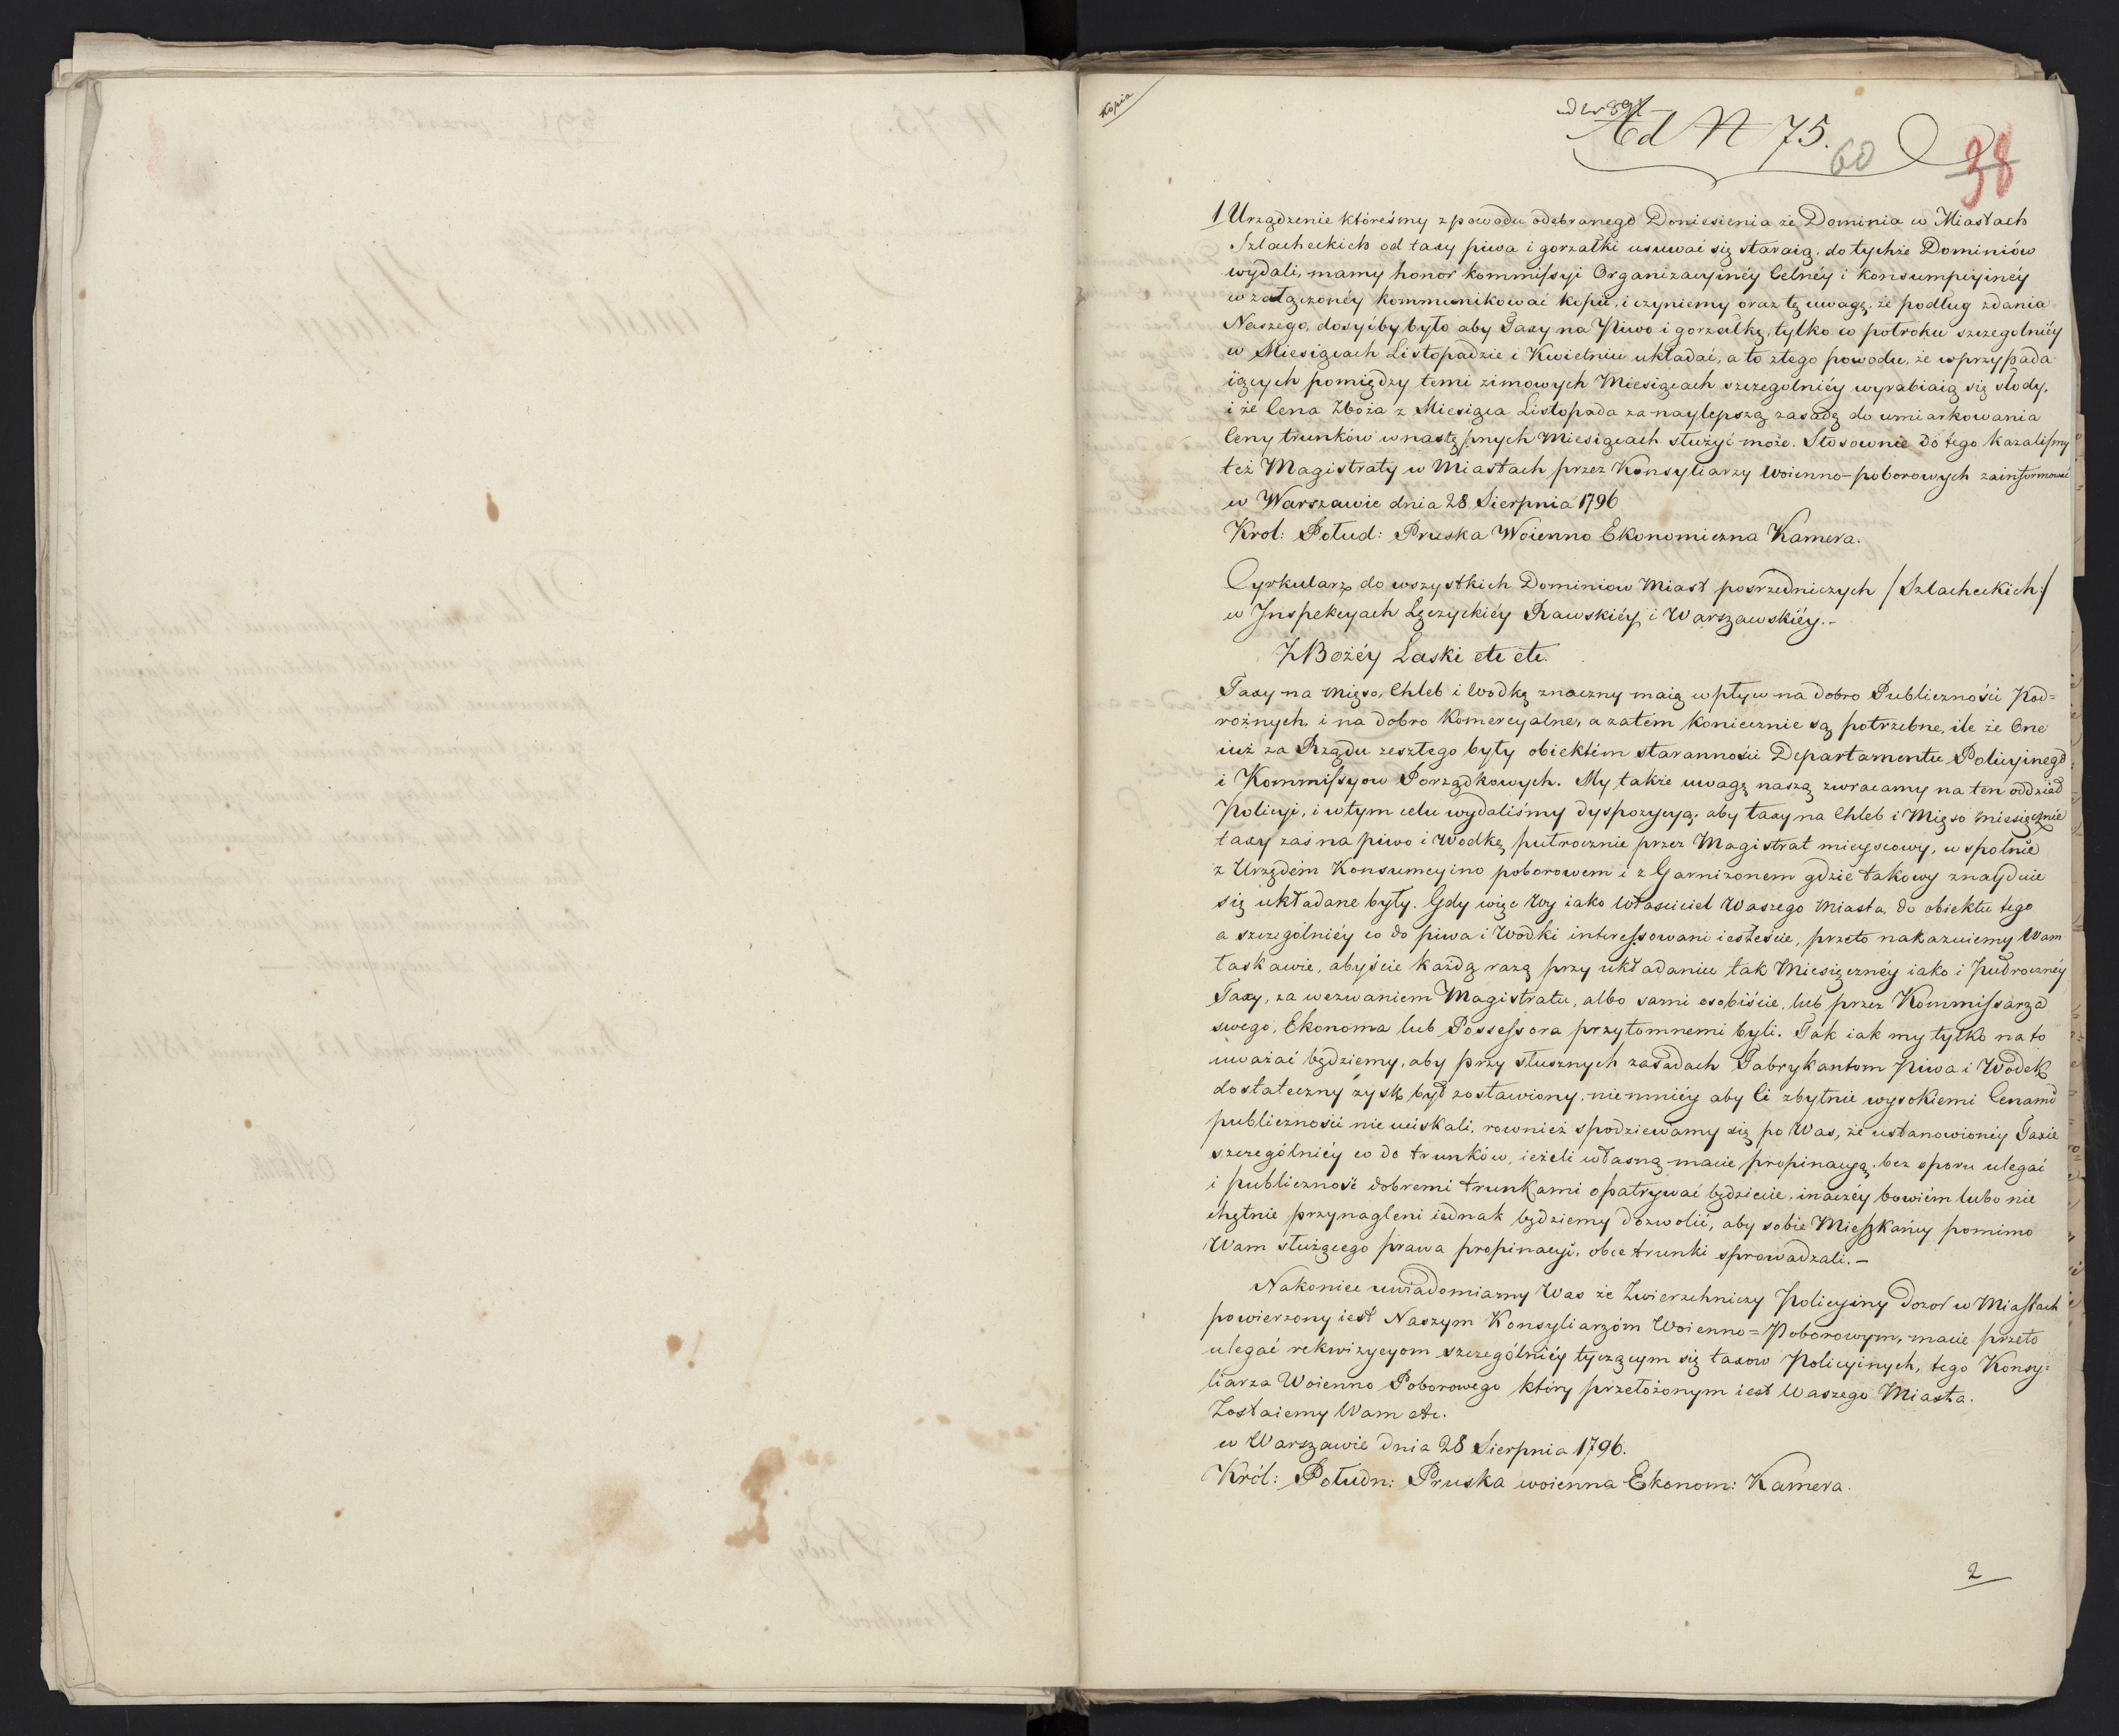 Kopia
Ad N 75.
60
38
1 Urządzenie któreśmy z powodu odebranego Doniesienia że Dominia w Miastach
Szlacheckich od taxy piwa i gorzałki usuwać się staraią, do tychże Dominiów
wydali, mamy honor kommissyi Organizacyinéy Celnéy i konsumpcyinéy
w załączonéy kommunikować kopii, i czyniemy oraz tę uwagę, że podług zdania
Naszego, dosyćby było aby Taxy na Piwo i gorzałkę, tylko co potroku szczegolniéy
w Miesiącach Listopadzie i Kwietniu układać, a to z tego powodu, że w przypada
iących pomiędzy temi zimowych Miesiącach szczegolniéy wyrabiaią się słody,
i że Cena Zboża z Miesiąca Listopada za naylepszą zasadę do umiarkowania
Ceny trunków w następnych Miesiącach służyć może. Stosownie do tego kazalismy
też Magistraty w Miastach przez Konsyliarzy Woienno-poborowych zainformować
w Warszawie dnia 28 Sierpnia 1796
Krol: Połud: Pruska Woienno Ekonomiczna Kamera.
Cyrkularz do wszystkich Dominiow Miast posrzedniczych /Szlacheckich:/
w Inspekcyach Łęczyckiéy Rawskiéy i Warszawskiéy.-
Z Bożéy Łaski etc etc.
Taxy na Mięso, Chleb i Wodkę znaczny maią wpływ na dobro Publiczności Pod=
rożnych, i na dobro komercyalne, a zatém koniecznie są potrzebne, ile że One
iuż za Rządu zeszłego były obiektém staranności Departamentu Policyinego
i Kommissyow Porządkowych. My także uwagę naszą zwracamy na ten oddział
Policyi, i w tym celu wydaliśmy dyspozycyą, aby taxy na Chleb i Mięso miesięcznie
taxy zaś na piwo i Wodkę putrocznie przez Magistrat mieyscowy, wspolnie
z Urzędém Konsumcyino poborowem i z Garnizonem gdzie takowy znayduie
się układane były. Gdy więc Wy iako Właściciel Waszego Miasta, do obiektu tego
a szczególniéy co do piwa i Wodki interessowani iesteście, przeto nakazuiemy Wam
łaskawie, abyście każdą razą przy układaniu tak Miesięcznéy iako i Pułrocznéy
Taxy, za wezwaniem Magistratu, albo sami osobiście, lub przez Kommissarza
swego, Ekonoma lub Possessora przytomnemi byli. Tak iak my tylko na to
uważać będziemy, aby przy słusznych zasadach Fabrykantom Piwa i Wódek
dostateczny zysk był zostawiony, niemniéy aby Ci zbytnie wysokiemi Cenami
publiczności nie uciskali, rownież spodziewamy się po Was, że ustanowionéy Taxie
szczególniéy co do trunków, ieżeli własną macie propinacyą, bez sporu ulegać
i publiczność dobremi trunkami opatrywać będziecie, inaczéy bowiém lubo nie
chętnie przynagleni iednak będziemy dozwolić, aby sobie Mieszkańcy pomimo
Wam służącego prawa propinacyi, obce trunki sprowadzali.-
Nakoniec uwiadomiamy Was że Zwierzchniczy Policyiny dozór w Miastach
powierzony iest Naszym Konsyliarzóm Woienno=Poborowym, macie przeto
ulegać rekwizycyom szczególniéy tyczącym się taxow Policyinych, tego Konsy=
liarza Woienno Poborowego który przełożonym iest Waszego Miasta.
Zostaiemy Wam etc.
w Warszawie dnia 28 Sierpnia 1796.
Król: Południ: Pruska woienna Ekonom: Kamera.
2